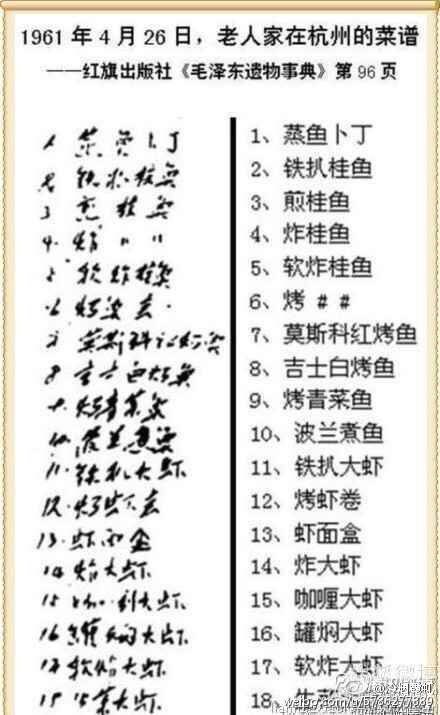 1961 年 4 月 26 日，老人家在杭州的菜谱
——红旗出版社《毛泽东遗物事典》第 96 页
1、蒸鱼卜丁
2、铁扒桂鱼
3、煎桂鱼
4、炸桂鱼
5、软炸桂鱼
6、烤 # #
7、莫斯科红烤鱼
8、吉士白烤鱼
9、烤青菜鱼
10、波兰煮鱼
11、铁扒大虾
12、烤虾卷
13、虾面盒
14、炸大虾
15、咖喱大虾
16、罐焖大虾
17、软炸大虾
18、
1 蒸鱼卜丁
2 铁扒桂鱼
3 煎桂鱼
4. 炸 〃 〃
5 软炸桂鱼
7 莫斯科红烤鱼
8 吉士白烤鱼
9. 烤青菜鱼
10. 波兰煮鱼
11. 铁扒大虾
12. 烤虾卷
13. 虾面盒
14 炸大虾
15 咖利大虾
16 罐焖大虾
17 软炸大虾
18